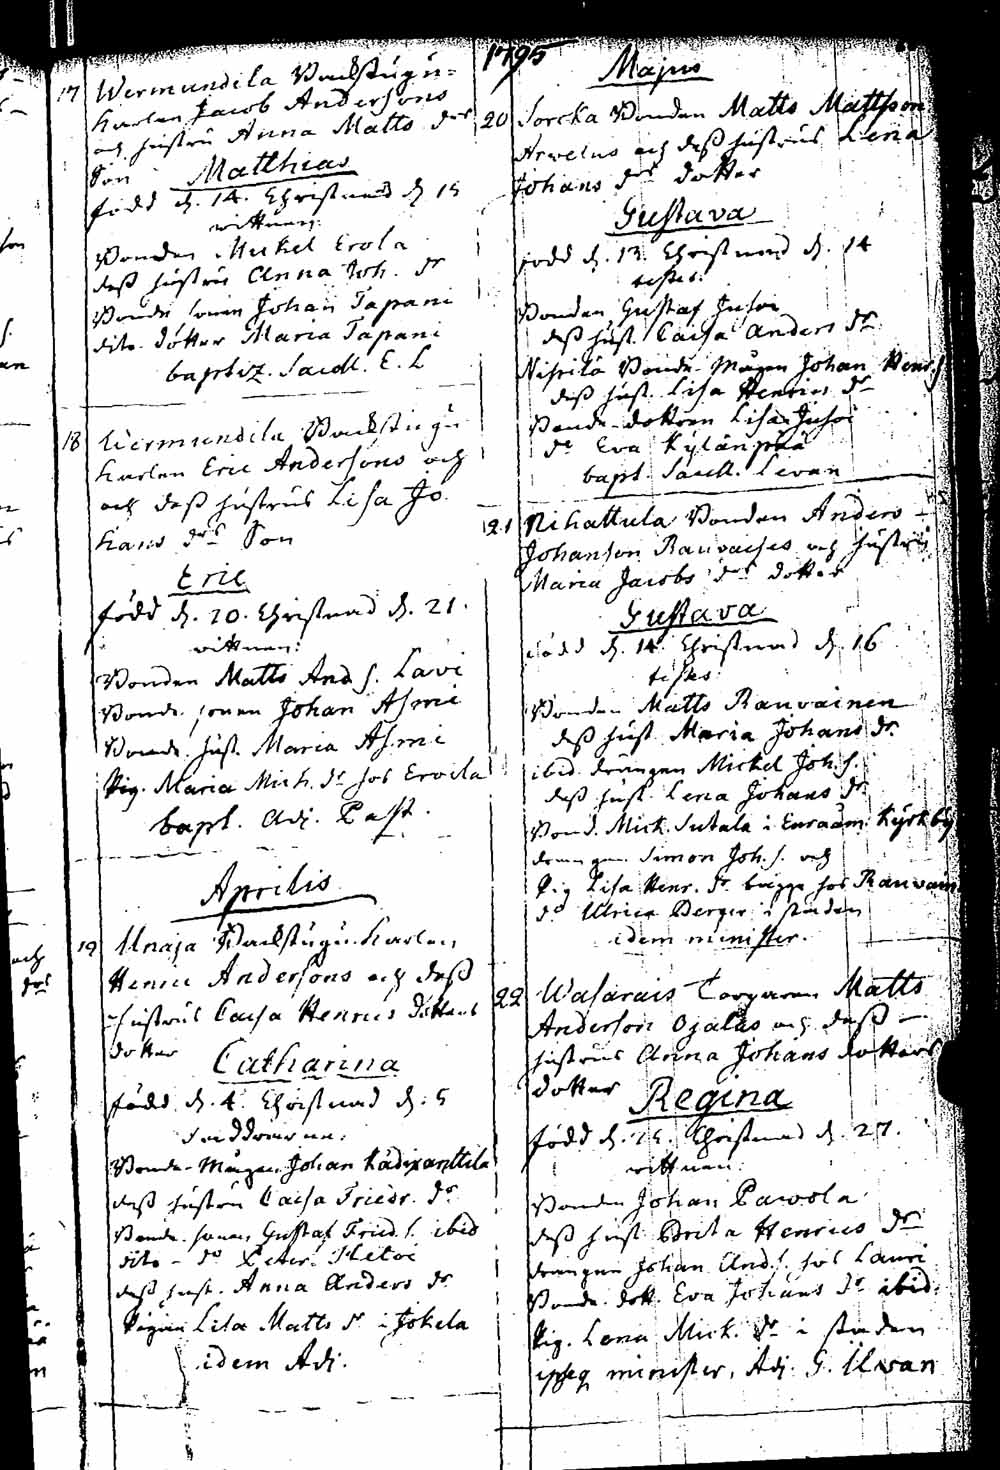 1795
17 Wermundila Backstugu-
karlen Jacob Andersons
och hustru Anna Matts drs
Son Matthias
född d. 14. Christnad d 15
vittnen:
Bonden Mickel Erola
dess hustru Anna Joh. dr
Bonde sonen Johan Tapani
dito dotter Maria Tapani
baptiz. Sacell. E. L
18 Wermundila Backstugu
karlen Eric Andersons och
och dess hustrus Lisa Jo
hans drs Son
Eric
född d. 20. Christnad d. 21.
vittnen:
Bonden Matts And s. Lavi
Bonde sonen Johan Asmi
Bonde hust. Maria Asmi
Pig. Maria Mich. dr hos Ervela
bapt. Adj. Past.
Aprilis
19 Unaja Backstugu karlen
Henric Andersons och dess
hustrus Caisa Henrics dotters
dotter Catharina
född d. 4. Christnad d. 5
Bonde-Mågen Johan Kädixanttila
dess hustru Caisa Friedr. dr
Bonde sonen Gustaf Fried. s. ibid
dito - do Peter
dess hust. Anna Anders dr
Pigan Lisa Matts dr i Jokela
idem Adj.
Majus
20 Sorcka Bonden Matts Mattsson
Arvelus och dess hustrus Lena
Johans drs dotter
Gustava
född d. 13. Christnad d. 14
testes:
Bonden Gustaf Jusoi
dess hust. Caisa Anders dr
Nihtilä Bonde-Mågen Johan Henr. s
dess hust. Lisa Henrics dr
Bonde-dottren Lisa Jusoi
do Eva Kylänpää
bapt. Sacell. Levan
21 Nihattula Bonden Anders
Johanson Rauvaises och hustru
Maria Jacobs drs dotter
Gustava
född d. 14. Christnad d. 16
testes
Bonden Matts Rauvainen
dess hust Maria Johans dr.
ibid. drängen Mickel Joh. s.
dess hust. Lena Johans dr
Bond. Mick. Sutala i Euraåm. Kyrkby
drängen Simon Joh. s. och
Pig. Lisa Henr. dr bägge hos Rauvain
do Ulrica Berger i staden
idem minister.
22 Wasarais Torparen Matts
Anderson Ojalas och dess
hustrus Anna Johans dotters
dotter Regina
född d. 25. Christnad d. 27.
vittnen:
Bonden Johan Pawola
dess hust Brita Henrics dr
drängen Johan And. s. hos Lauri
Bonde dott. Eva Johans dr ibid.
Pig. Lena Mick. dr i staden
minister, Adj. G. Ilwan